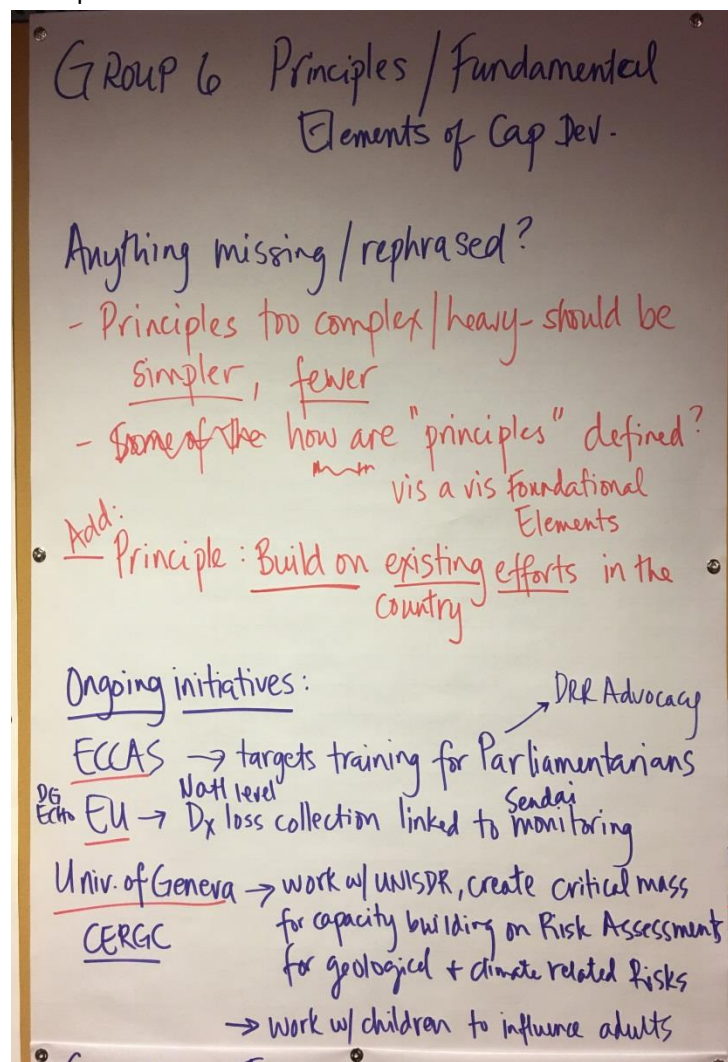 GROUP 6 Principles / Fundamental
Elements of Cap Dev.
Anything missing / rephrased?
- Principles too complex / heavy - should be
simpler, fewer
- Some of the how are "principles" defined?
vis a vis Foundational
Elements
Add:
Principle : Build on existing efforts in the
country
Ongoing initiatives :
DRR Advocacy
ECCAS → targets training for Parliamentarians
Nat'l level Sendai
DG ECHO EU → Dx loss collection linked to monitoring
Univ. of Geneva → work w/ UNISDR, create critical mass
CERGC for capacity building on Risk Assessment
for geological + climate related Risks
→ work w/ children to influence adults